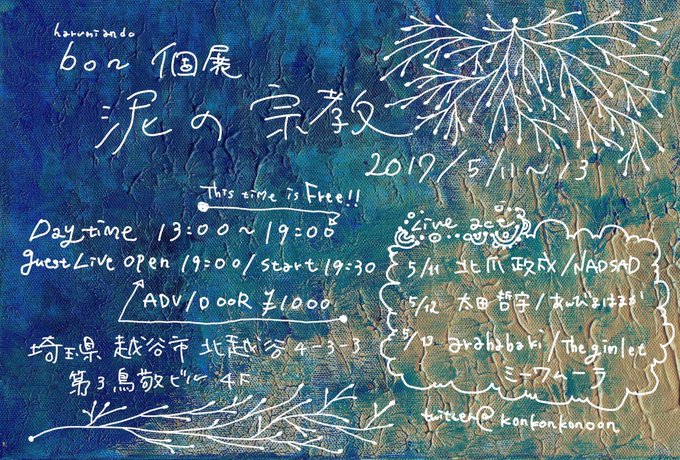 harumiando
bon 個展
泥の宗教
2017/5/11~13
This time is Free!!
Day time 13:00~19:00
guest Live open 19:00/start 19:30
ADV/DOOR ¥1000
埼玉県 越谷市 北越谷 4-3-3
第3鳥敬ビル 4F
Live act
5/11 北爪 政成/NADSAD
5/12 太田 哲宇/あんびるはるか
5/13 arahabaki/The gimlet
ミーワムーラ
twitter@konkonkonoon